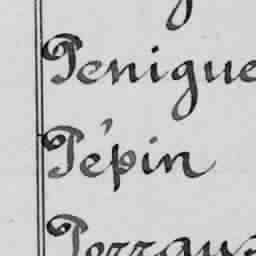 Penigue
Pépin